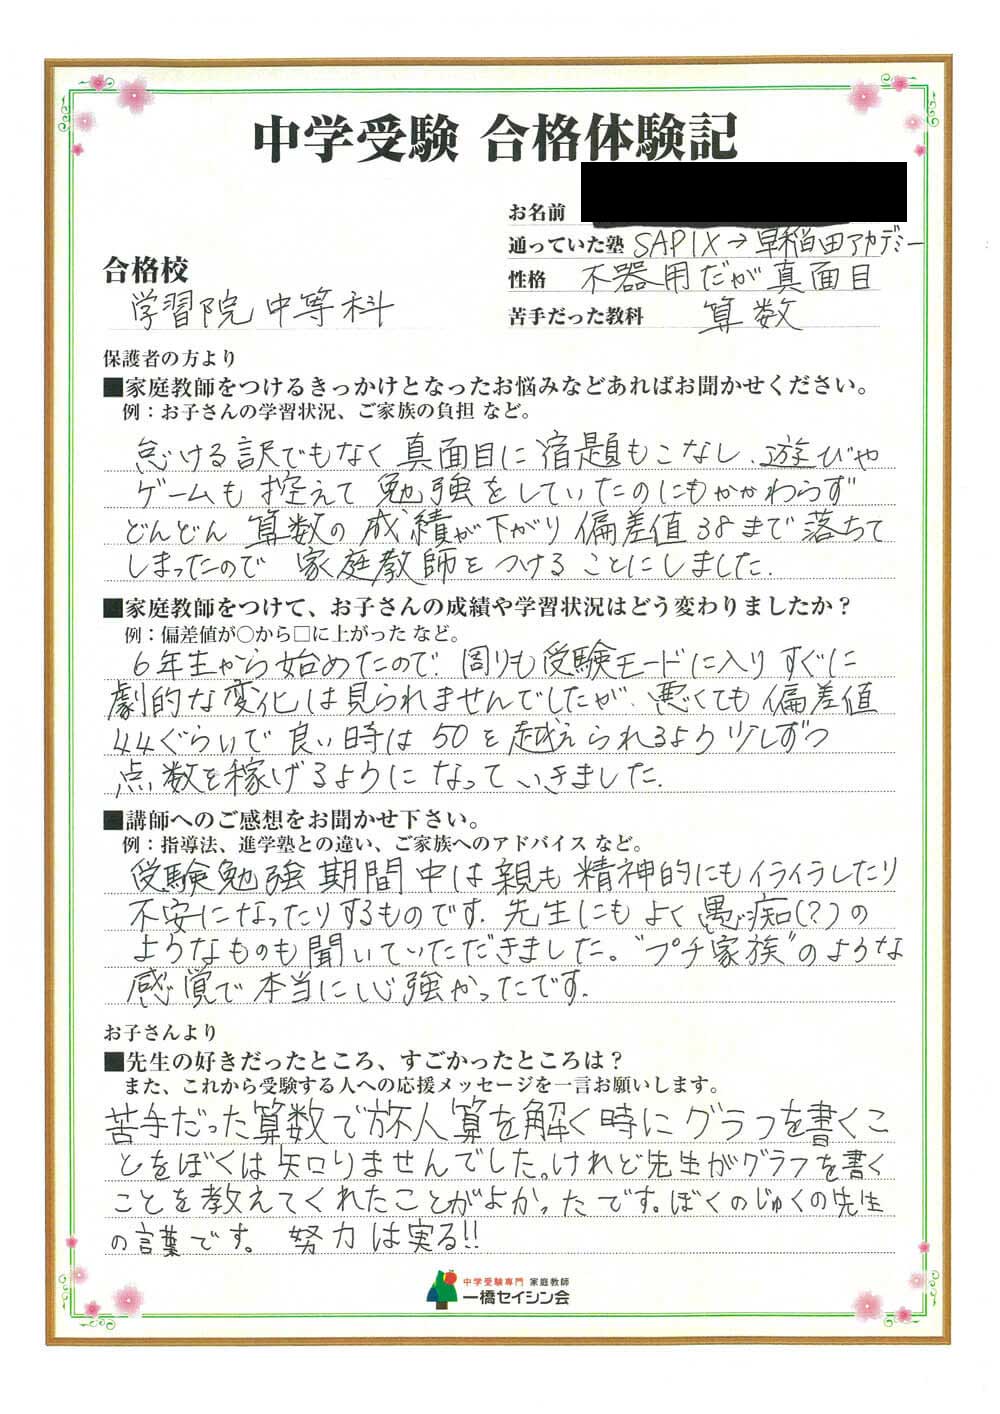 中学受験 合格体験記
お名前
通っていた塾 SAPIX→早稲田アカデミー
性格 不器用だが真面目
苦手だった教科 算数
合格校
学習院中等科
保護者の方より
■家庭教師をつけるきっかけとなったお悩みなどあればお聞かせください。
例：お子さんの学習状況、ご家族の負担 など。
怠ける訳でもなく真面目に宿題もこなし、遊びや
ゲームも控えて勉強をしていたのにもかかわらず
どんどん算数の成績が下がり偏差値38まで落ちて
しまったので 家庭教師をつけることにしました.
■家庭教師をつけて、お子さんの成績や学習状況はどう変わりましたか？
例：偏差値が○から□に上がった など。
6年生から始めたので、周りも受験モードに入りすぐに
劇的な変化は見られませんでしたが、悪くても偏差値
44ぐらいで良い時は50を越えられるよう少しずつ
点数を稼げるようになっていきました.
■講師へのご感想をお聞かせ下さい。
例：指導法、進学塾との違い、ご家族へのアドバイス など。
受験勉強期間中は親も精神的にもイライラしたり
不安になったりするものです. 先生にもよく愚痴(?)の
ようなものも聞いていただきました。“プチ家族”のような
感覚で本当に心強かったです.
お子さんより
■先生の好きだったところ、すごかったところは？
また、これから受験する人への応援メッセージを一言お願いします。
苦手だった算数で旅人算を解く時にグラフを書くこ
とをぼくは知りませんでした。けれど先生がグラフを書く
ことを教えてくれたことがよかったです。ぼくのじゅくの先生
の言葉です。 努力は実る!!
中学受験専門 家庭教師
一橋セイシン会